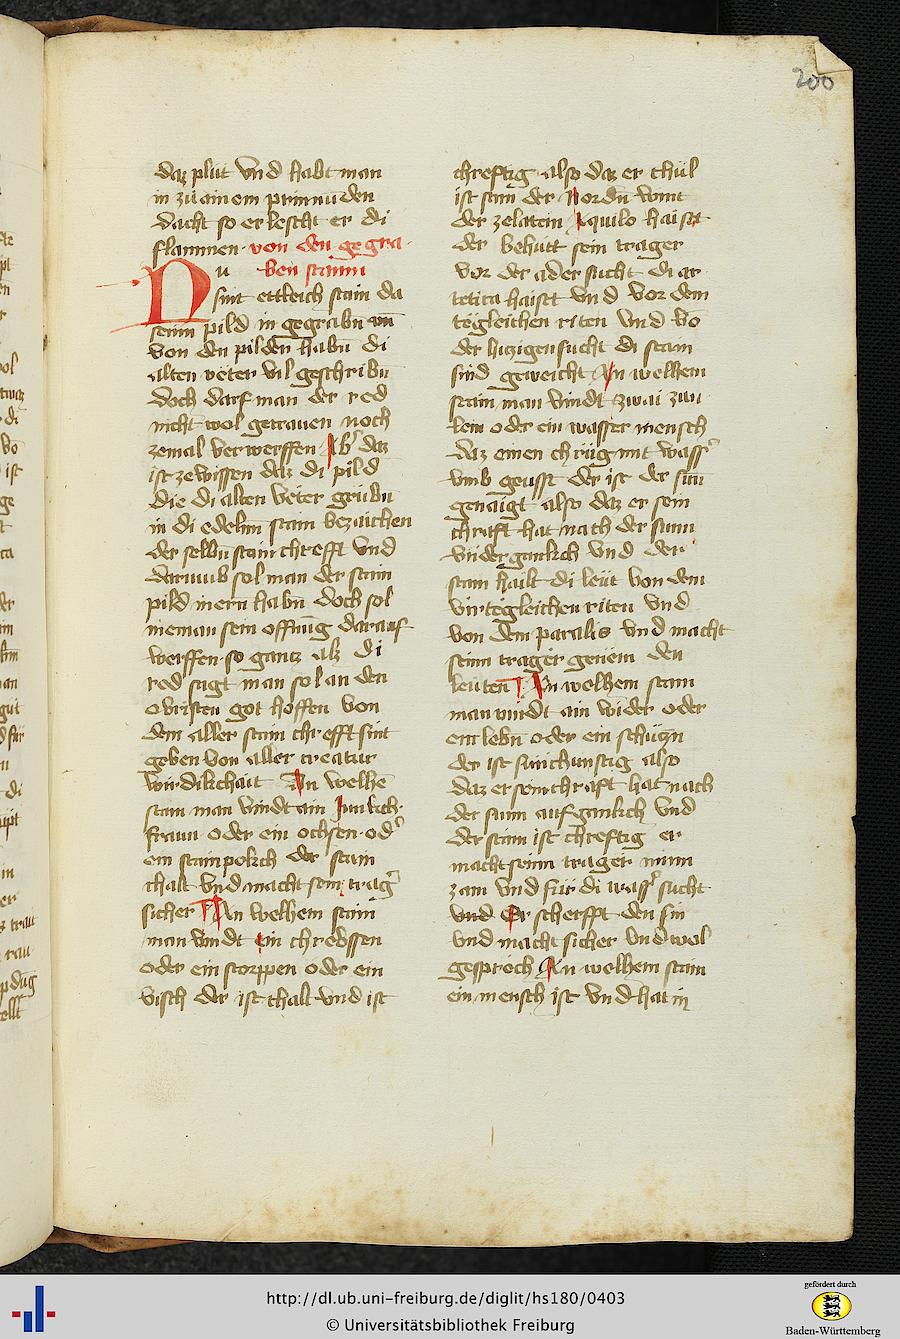 200
daz plut vnd habt man
in zu ainem prinnunden
dacht so erlescht er di
flammen von den gegra
ben stainn
Nu
sint ettleich stain da
seinn pild in gegrabn vn̄
von den pilden habn di
alten veter vil geschribn
doch darf man der red
nicht wol getrauen noch
zemal verwerffen Ab daz
ist ze wissen daz di pild
die di alten veter grubn
in di edeln stain bezaichen
der selbn stain chrefft vnd
darumb sol man der stain
pild in ern habn doch sol
nieman sein offnūg darauf
werffen so gantz alz di
red sagt man sol an den
obristen got hoffen von
dem aller stain chrefft sint
geben von aller creatur
wirdikchait An welhē
stain man vindt ain Junkch
fraun oder ein ochsen od
ein stainpokch der stain
chalt vnd macht sein trag
sicher An welhem stain
man vindt ein chrebssen
oder ein scorppen oder ein
visch der ist chalt vnd ist
chreftig also daz er chul
ist sam der Nordn wint
der ze latein Aquilo haisst
der behutt sein trager
vor der ader sucht di ar
tetica haisst vnd vor dem
tegleichen riten vnd vo
der hitzigen sucht di stain
sind geweicht An welhem
stain man vindt zwai zwi
lein oder ein wasser mensch
daz einen chrug mit wass
vmb geusst der ist der sun
genaigt also daz er sein
chraft hat nach der sunn
vndergankch vnd der
stain hailt di leut von dem
virtegleichen riten vnd
von dem paralis vnd macht
seinn trager genem den
leuten An welhem stain
man vindt ain wider oder
ein lebn oder ein schuczn
der ist feurchunstig also
daz er sein chraft hat nach
der sunn aufgankch vnd
der stain ist chreftig er
macht seinn trager minn
zam vnd für di wass sucht
vnd Er scherfft den sin
vnd macht sicher vnd wol
gesproch An welhem stain
ein mensch ist vnd hat in
http://dl.ub.uni-freiburg.de/diglit/hs180/0403
© Universitätsbibliothek Freiburg
gefördert durch
Baden-Württemberg